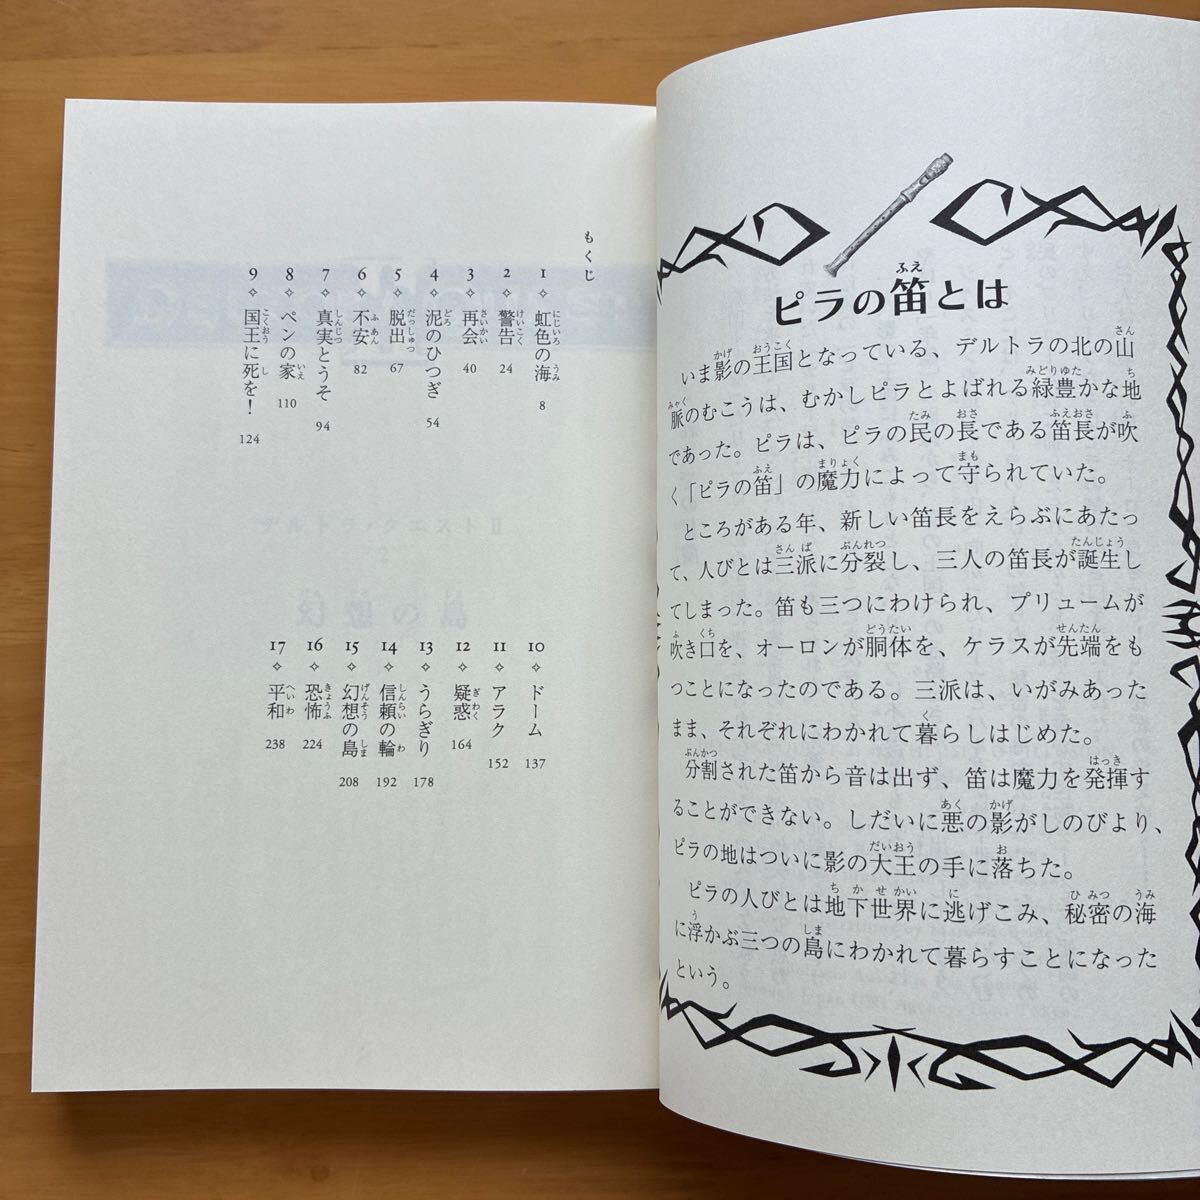 もくじ
1 ✧ 虹色の海 8
2 ✧ 警告 24
3 ✧ 再会 40
4 ✧ 泥のひつぎ 54
5 ✧ 脱出 67
6 ✧ 不安 82
7 ✧ 真実とうそ 94
8 ✧ ペンの家 110
9 ✧ 国王に死を！ 124
10 ✧ ドーム 137
11 ✧ アラク 152
12 ✧ 疑惑 164
13 ✧ うらぎり 178
14 ✧ 信頼の輪 192
15 ✧ 幻想の島 208
16 ✧ 恐怖 224
17 ✧ 平和 238
ピラの笛とは
いま影の王国となっている、デルトラの北の山
脈のむこうは、むかしピラとよばれる緑豊かな地
であった。ピラは、ピラの民の長である笛長が吹
く「ピラの笛」の魔力によって守られていた。
ところがある年、新しい笛長をえらぶにあたっ
て、人びとは三派に分裂し、三人の笛長が誕生し
てしまった。笛も三つにわけられ、プリュームが
吹き口を、オーロンが胴体を、ケラスが先端をも
つことになったのである。三派は、いがみあった
まま、それぞれにわかれて暮らしはじめた。
分割された笛から音は出ず、笛は魔力を発揮す
ることができない。しだいに悪の影がしのびより、
ピラの地はついに影の大王の手に落ちた。
ピラの人びとは地下世界に逃げこみ、秘密の海
に浮かぶ三つの島にわかれて暮らすことになった
という。